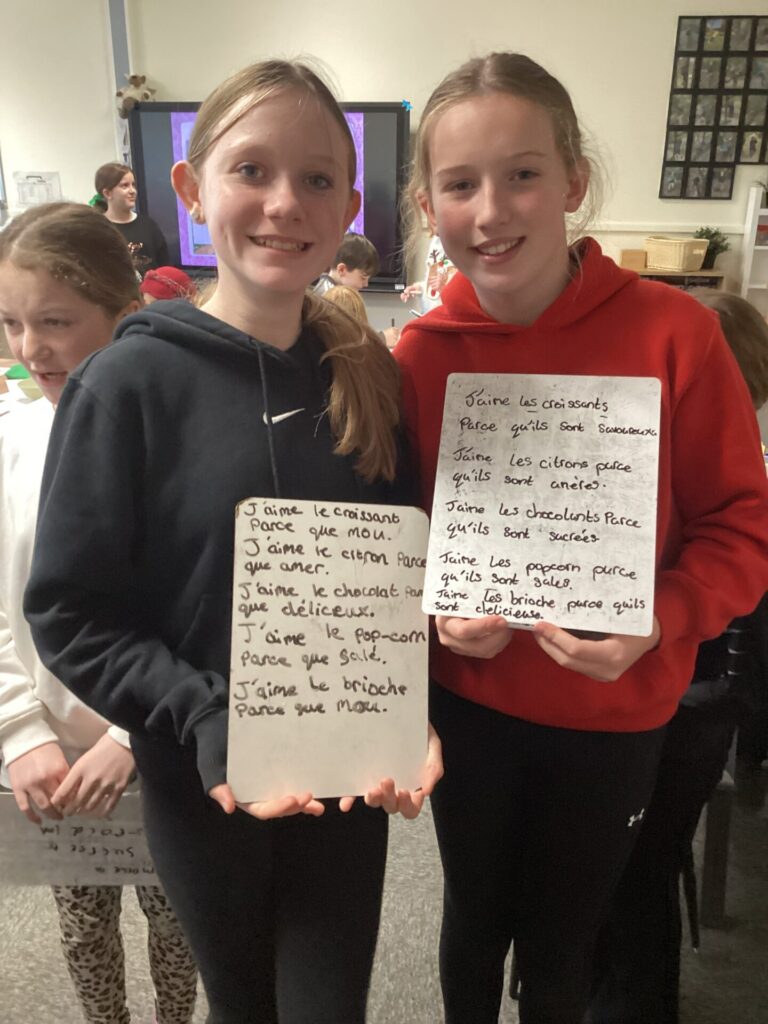 J'aime le croissant
Parce que mou.
J'aime le citron Parce
que amer.
J'aime le chocolat Par
que déliceux.
J'aime le pop-corn
Parce que Salé.
J'aime le brioche
Parce que mou.
J'aime les croissants
Parce qu'ils sont savoureux
J'aime les citrons parce
qu'ils sont amères.
J'aime les chocolants Parce
qu'ils sont sucrées
J'aime Les popcorn parce
qu'ils sont salés.
J'aime les brioche parce quils
sont délicieuse.